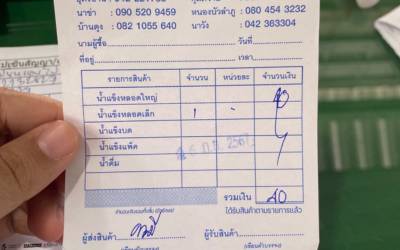 นาข่า : 090 520 9459 หนองบัวลำภู : 080 454 3232
บ้านดุง : 082 1055 640 นาวัง : 042 363304
นามผู้ซื้อ วันที่
ที่อยู่ เวลา
รายการสินค้า จำนวน หน่วยละ จำนวนเงิน
น้ำแข็งหลอดใหญ่ 40
น้ำแข็งหลอดเล็ก 1 -
น้ำแข็งบด
น้ำแข็งแพ็ค 2567
น้ำดื่ม
รวมเงิน 40
ได้รับสินค้าตามรายการแล้ว
ผู้ส่งสินค้า ผู้รับสินค้า